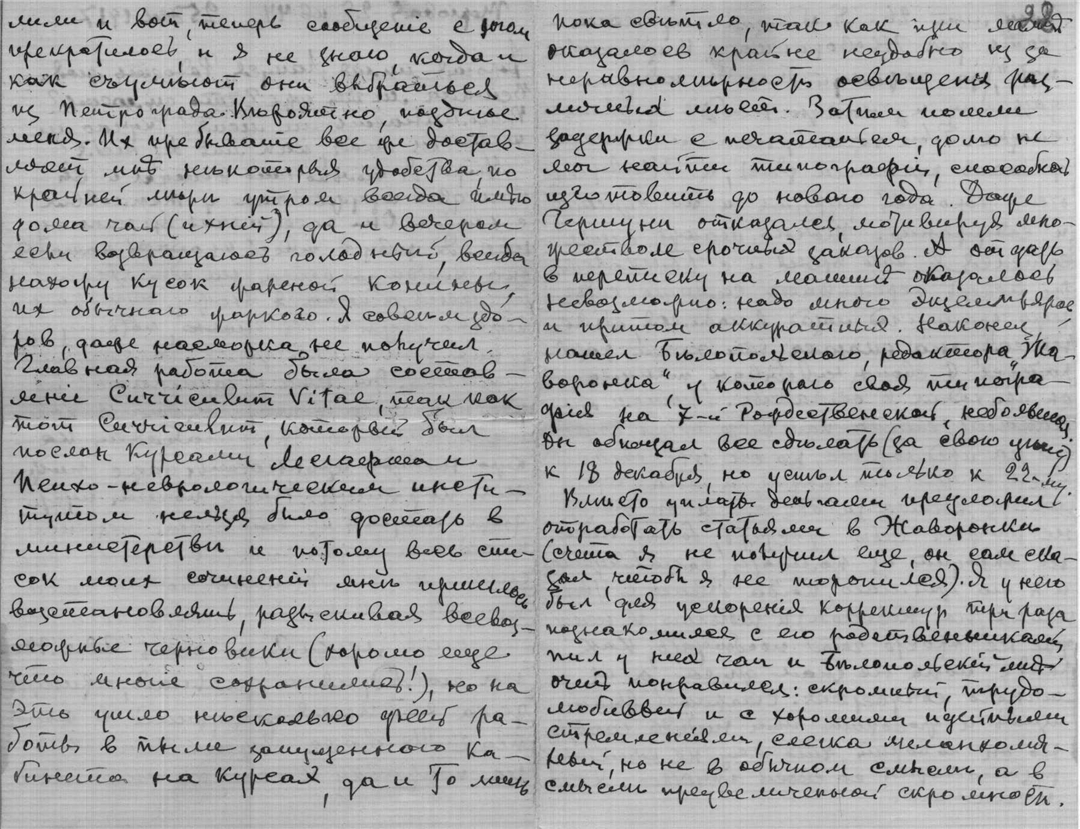 лили и вот, теперь сообщеніе с югом
прекратилось, и я не знаю, когда и
как съумѣют они выбраться
из Петрограда. Вѣроятно, позднѣе
меня. Их пребываніе все же достав-
ляет мнѣ нѣкоторыя удобства по
крайней мѣрѣ утром всегда имѣю
дома чай (ихній), да и вечером
если возвращаюсь голодный, всегда
нахожу кусок жареной конины,
их обычнаго жаркого. Я совсем здо-
ров, даже насморка не получил.
Главная работа была состав-
леніе Curriculum Vitae, так как
тот Curriculum, который был
послан Курсами Лесгафта и
Психо-неврологическим инсти-
тутом нельзя было достать в
министерствѣ и потому весь спи-
сок моих сочиненій мнѣ пришлось
возстановлять, разыскивая всевоз-
можные черновики (хорошо еще
что многіе сохранились!), но на
это ушло нѣсколько дней ра-
боты в пыли запущенного ка-
бинета на Курсах, да и то лишь
28
пока свѣтло, так как при лампѣ
оказалось крайне неудобно из за
неравномѣрность освѣщенія раз-
личных мѣст. Затѣм пошли
задержки с печатаніем, долго не
мог найти типографіи, способной
изготовить до нового года. Даже
отказался, мотивируя мно-
жеством срочных заказов. А отдать
в переписку на машинѣ оказалось
невозможно: надо много экземпляров
и притом аккуратных. Наконец,
нашел Бѣлопольского, редактора "Жа-
воронка", у которого своя типогра-
фія на 7-й Рождественской, небольшая.
Он обѣщал все сдѣлать (за свою цѣну)
к 18 декабря, но успѣл только к 22-му.
Вмѣсто уплаты деньгами предложил
отработать статьями в Жаворонкѣ
(счета я не получил еще, он сам ска-
зал, чтобы я не торопился). Я у него
был для ускоренія корректур три раза
познакомился с его родственниками,
пил у них чай и Бѣлопольскій мнѣ
очень понравился: скромный, трудо-
любивый и с хорошими идейными
стремленіями, слегка меланхолич-
ный, но не в обычном смыслѣ, а в
смыслѣ преувеличенной скромности.